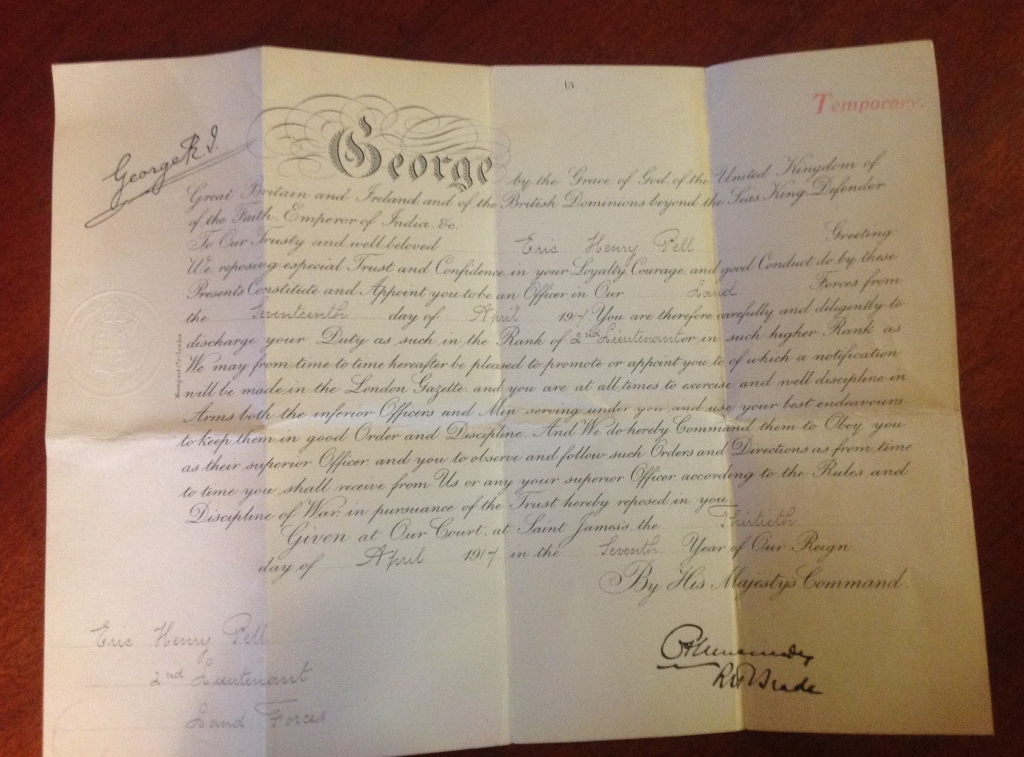 18
Temporary.
George R.I.
George by the Grace of God, of the United Kingdom of
Great Britain and Ireland and of the British Dominions beyond the Seas, King, Defender
of the Faith, Emperor of India, &c.
To Our Trusty and well beloved Eric Henry Pell Greeting.
We, reposing especial Trust and Confidence in your Loyalty, Courage, and good Conduct, do by these
Presents Constitute and Appoint you to be an Officer in Our Land Forces from
the Seventeenth day of April 1917. You are therefore carefully and diligently to
discharge your Duty as such in the Rank of 2nd Lieutenant or in such higher Rank as
We may from time to time hereafter be pleased to promote or appoint you to, of which a notification
will be made in the London Gazette, and you are at all times to exercise and well discipline in
Arms both the inferior Officers and Men serving under you, and use your best endeavours
to keep them in good Order and Discipline. And We do hereby Command them to Obey you
as their superior Officer, and you to observe and follow such Orders and Directions as from time
to time you shall receive from Us, or any your superior Officer, according to the Rules and
Discipline of War, in pursuance of the Trust hereby reposed in you.
Given at Our Court, at Saint James's, the Thirtieth
day of April 1917 in the Seventh Year of Our Reign.
By His Majesty's Command.
Eric Henry Pell
2nd Lieutenant
Land Forces
R H Brade